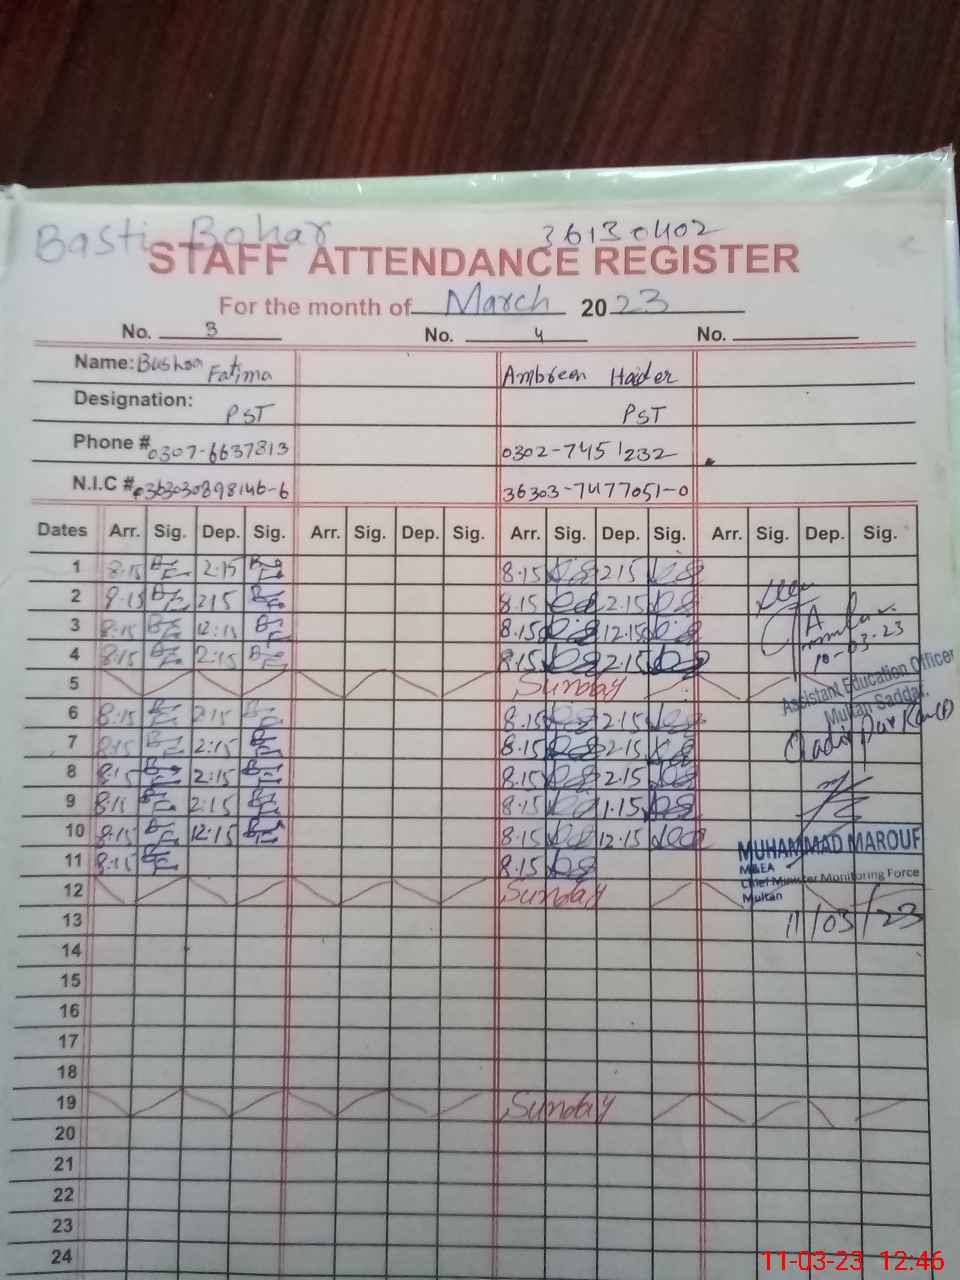 Basti Bohar 36130402
STAFF ATTENDANCE REGISTER
For the month of March 2023
No. 3 No. 4 No.
Name: Bushra Fatima Ambreen Haider
Designation: PST PST
Phone # 0307-6637813 0302-7451232
N.I.C # 363030898146-6 36303-7477051-0
Dates Arr. Sig. Dep. Sig. Arr. Sig. Dep. Sig. Arr. Sig. Dep. Sig. Arr. Sig. Dep. Sig.
1 8.15 2:15 8.15 2.15
2 8.15 2.15 8.15 2.15
3 8.15 12:15 8.15 12.15
4 8.15 2:15 8.15 2.15
10-03-23
5 Sunday
Assistant Education Officer
Multan Saddar.
6 8.15 2:15 8.15 2.15
7 8.15 2:15 8.15 2.15
8 8.15 2:15 8.15 2.15
9 8.15 2:15 8.15 1.15
10 8.15 12:15 8.15 12.15
MUHAMMAD MAROUF
11 8.15 8.15
M&EA
Chief Minister Monitoring Force
Multan
12 Sunday
13 11/03/23
14
15
16
17
18
19 Sunday
20
21
22
23
24
11-03-23 12:46